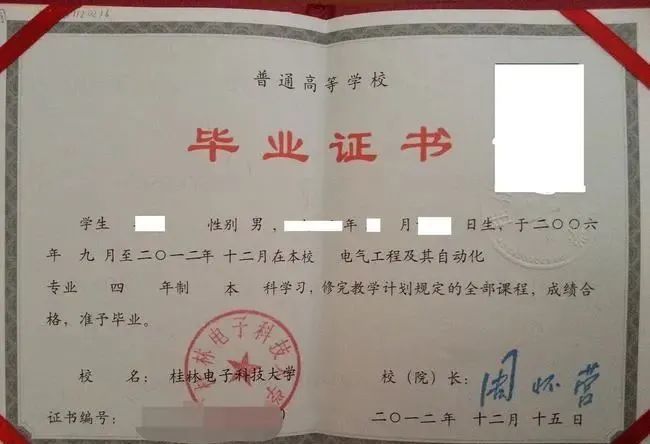 普通高等学校
毕业证书
学生 性别 男, 年 月 日生,于二〇〇六
年 九 月至二〇一二年 十二月在本校 电气工程及其自动化
专业 四 年制 本 科学习,修完教学计划规定的全部课程,成绩合
格,准予毕业。
校 名: 桂林电子科技大学 校(院)长: 周怀营
证书编号: 二〇一二年 十二月 十五日
桂林电子科技大学